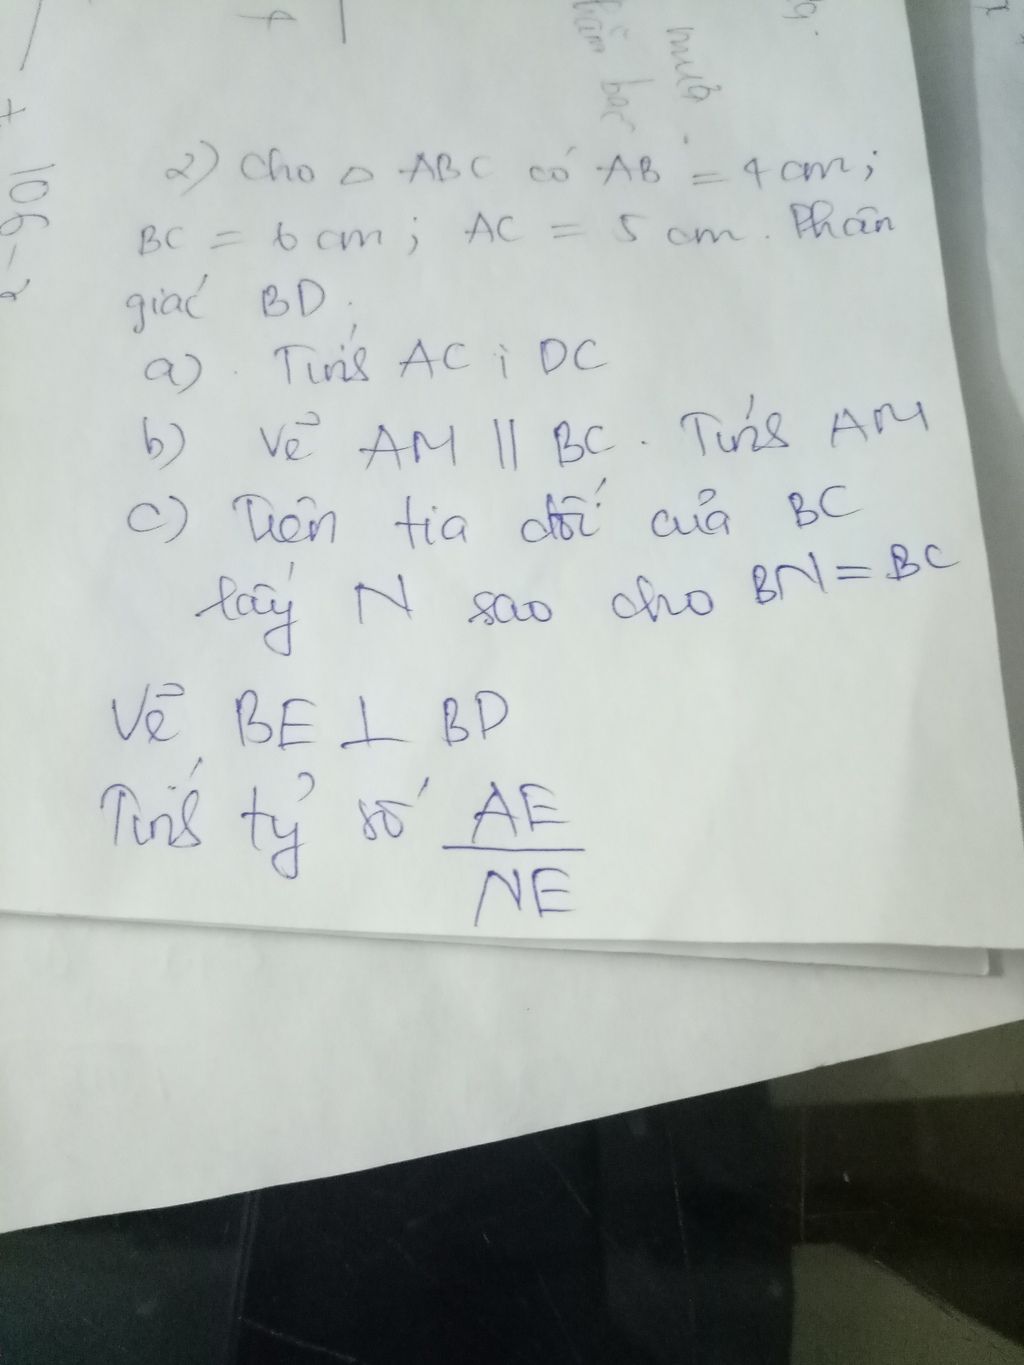 2) Cho △ ABC có AB = 4 cm;
BC = 6 cm; AC = 5 cm. Phân
giác BD.
a) Tính AC; DC
b) Vẽ AM // BC. Tính AM
c) Trên tia đối của BC
lấy N sao cho BN = BC
Vẽ BE ⊥ BD
Tính tỷ số AE
NE
mưa
10
6